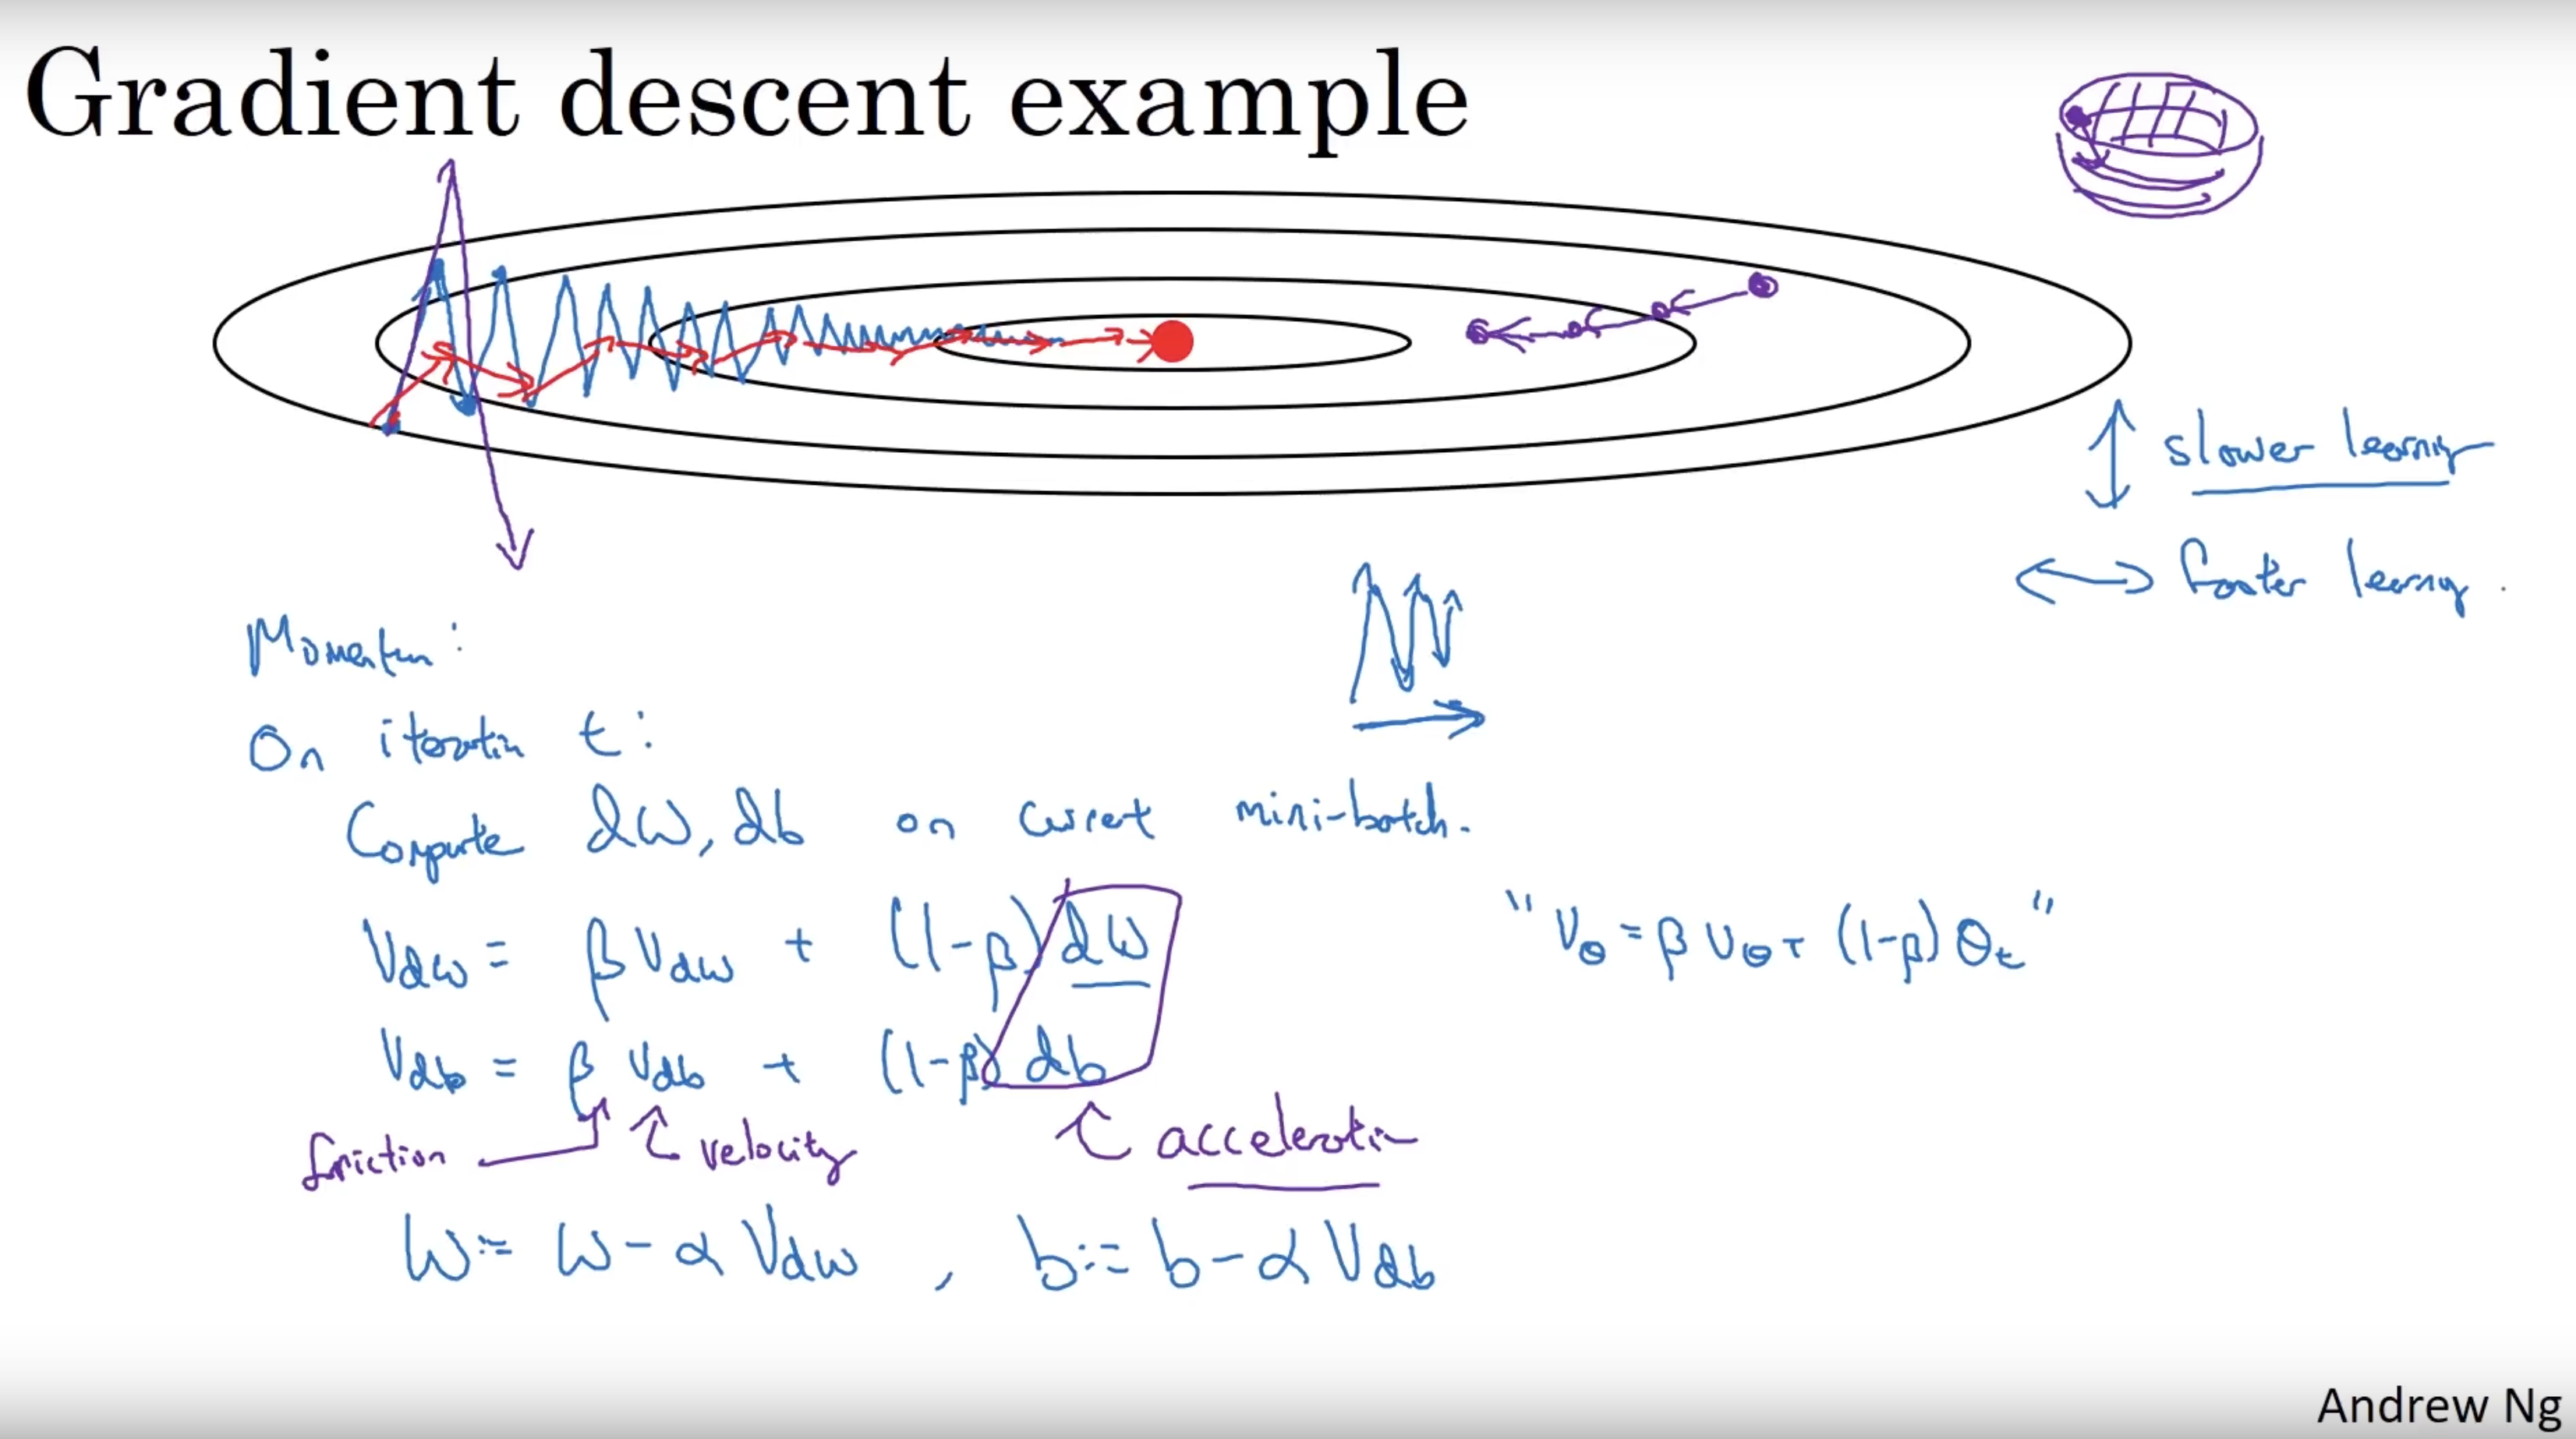 Gradient descent example
↕ slower learning
↔ faster learning
Momentum:
On iteration t:
Compute dW, db on current mini-batch.
Vdw = β Vdw + (1-β) dW
"Vθ = β Vθ + (1-β) θt"
Vdb = β Vdb + (1-β) db
friction velocity acceleration
W := W - α Vdw , b := b - α Vdb
Andrew Ng